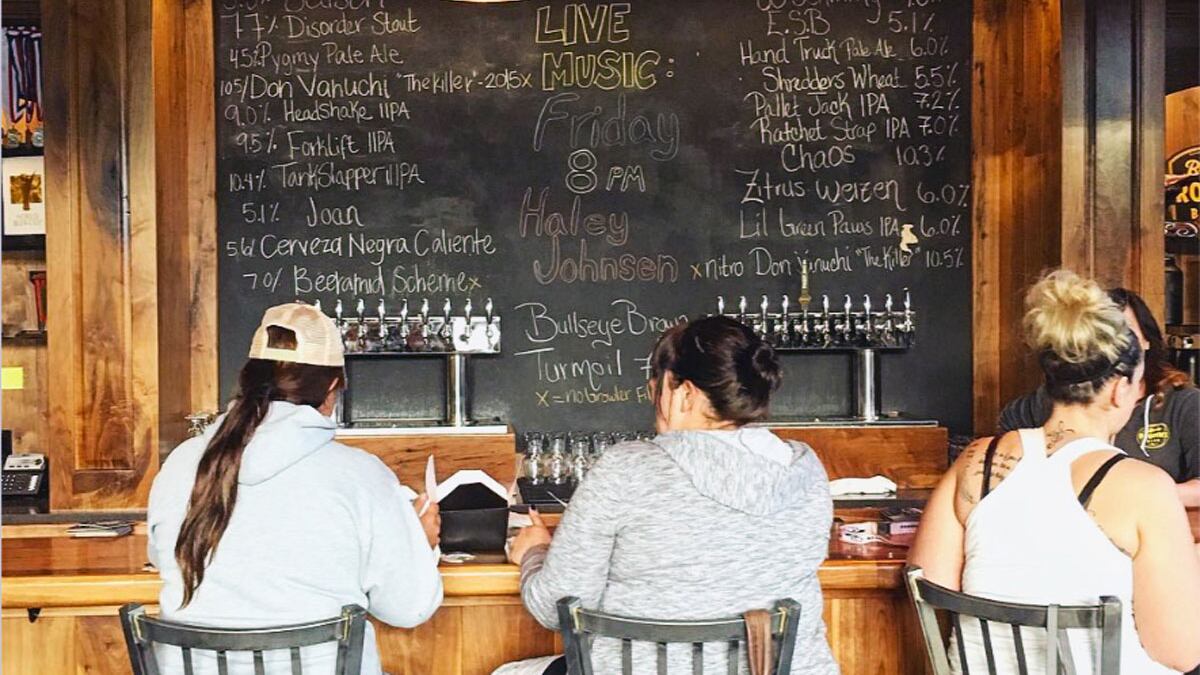 7.7% Disorder Stout
4.5% Pygmy Pale Ale
10.5% Don Vanuchi "The Killer" - 2015 x
9.0% Headshake IIPA
9.5% Forklift IIPA
10.4% TankSlapper IIPA
5.1% Joan
5.6% Cerveza Negra Caliente
7.0% Beeramid Scheme x
LIVE
MUSIC:
Friday
8 PM
Haley
Johnsen
Bullseye Brown
Turmoil 7
x = no Growler Fi
E.S.B 5.1%
Hand Truck Pale Ale 6.0%
Shredders Wheat 5.5%
Pallet Jack IPA 7.2%
Ratchet Strap IPA 7.0%
Chaos 10.3%
Zitrus Weizen 6.0%
Lil Green Paws IPA 6.0%
x nitro Don Vanuchi "The Killer" 10.5%